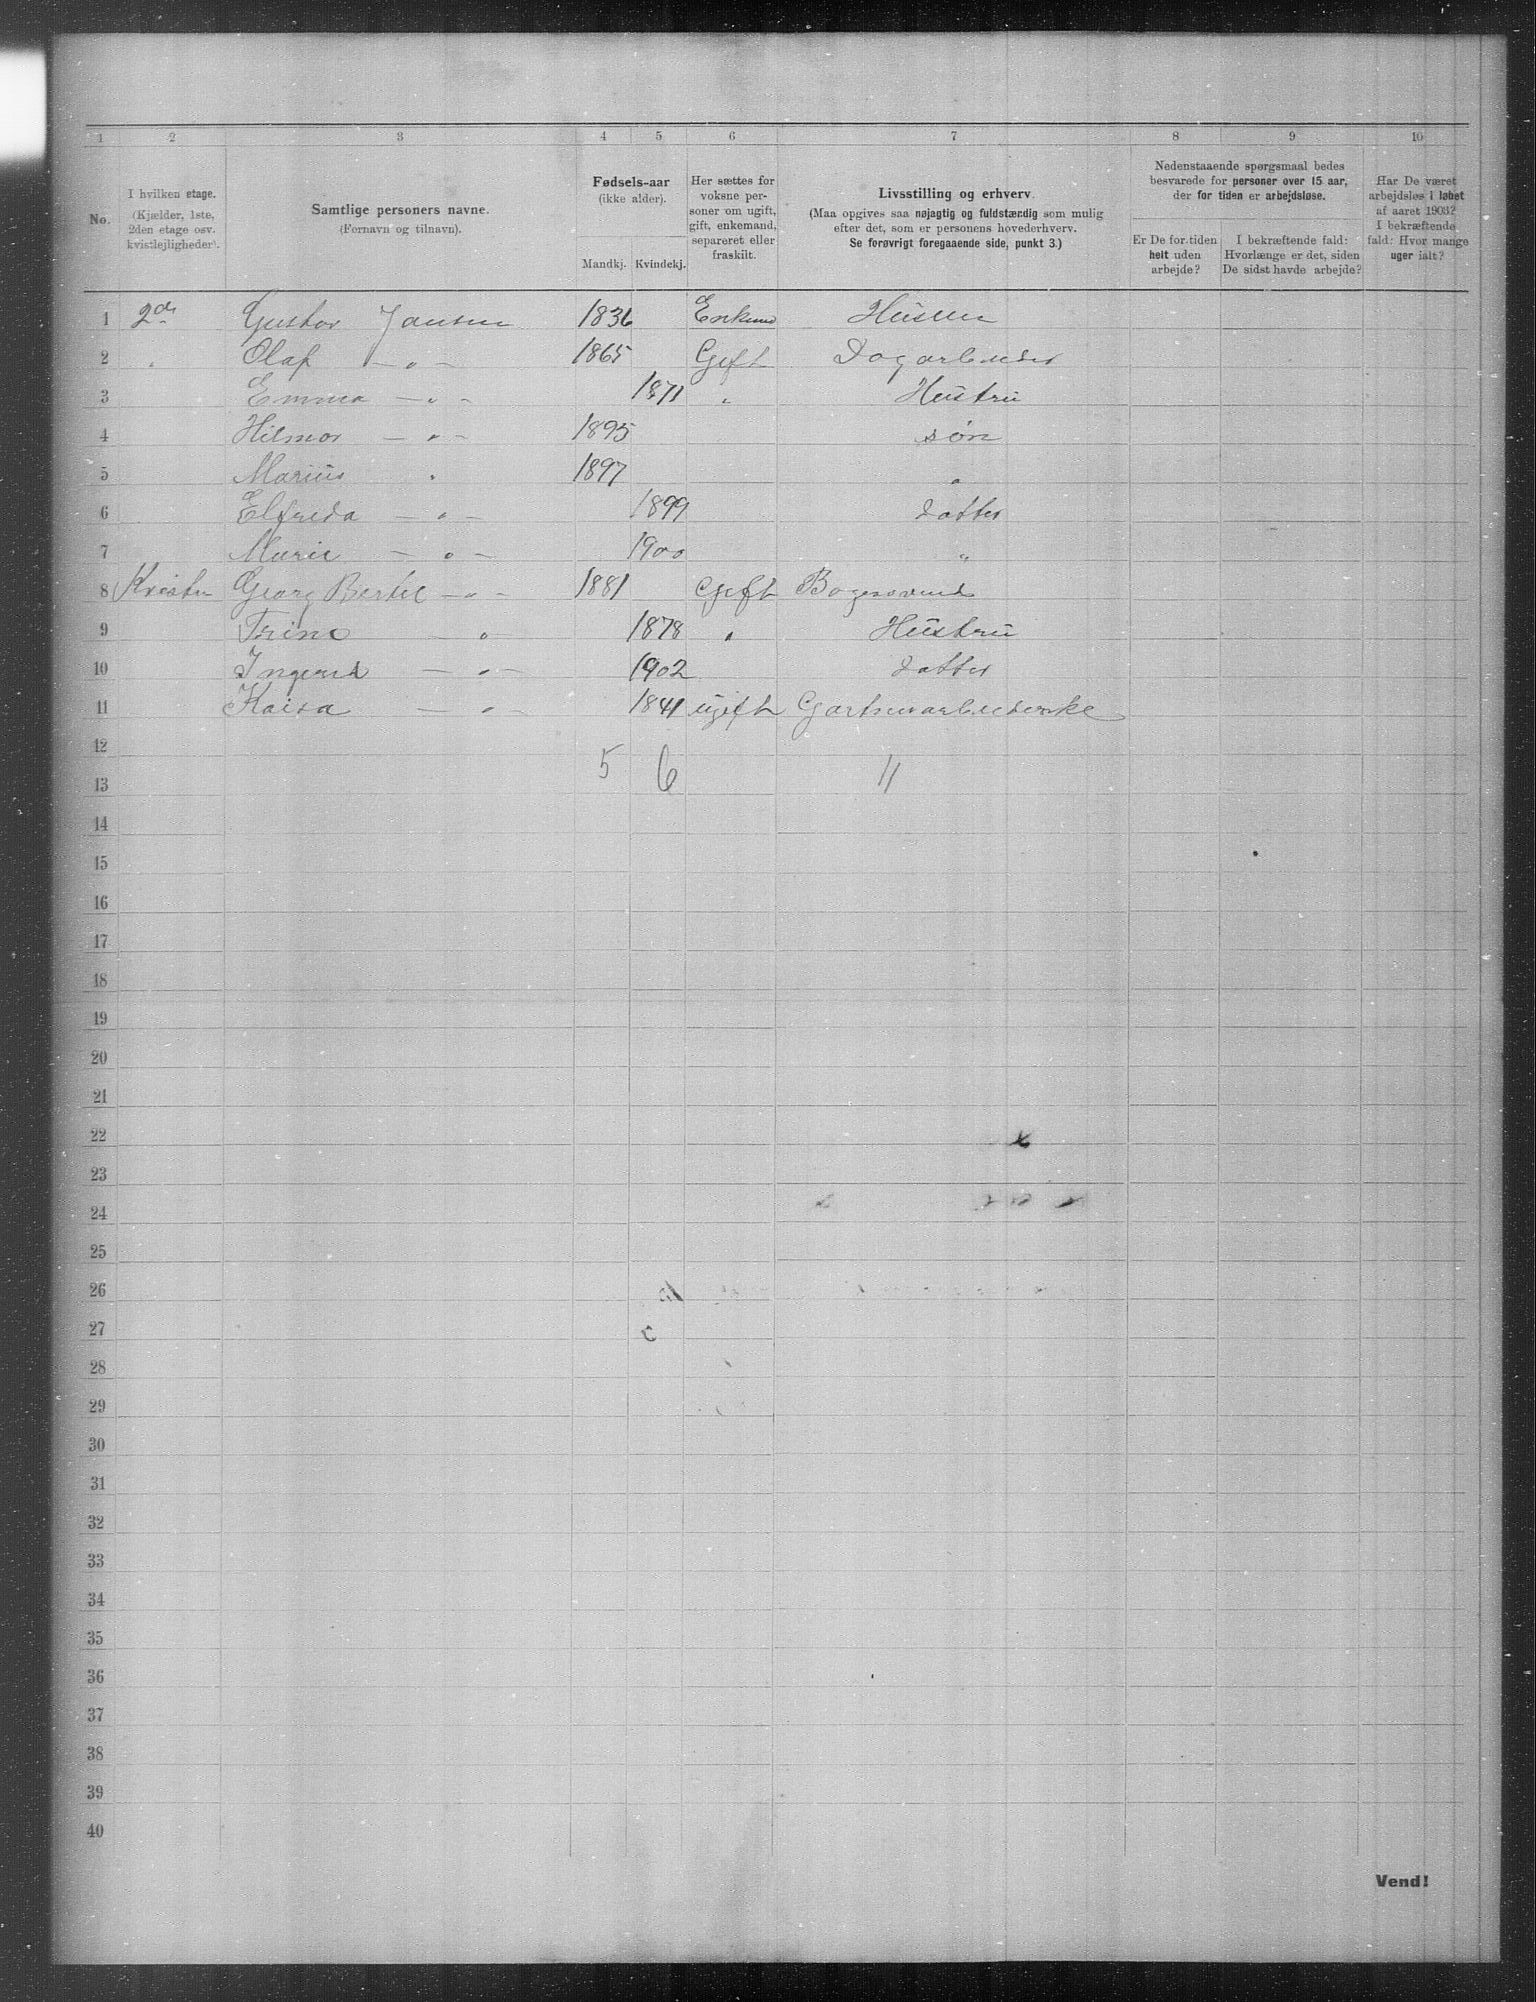 1 2 3 4 5 6 7 8 9 10
No.
I hvilken etage.
(Kjælder, 1ste,
2den etage osv.
kvistlejligheder).
Samtlige personers navne.
(Fornavn og tilnavn).
Fødsels-aar
(ikke alder).
Mandkj. Kvindekj.
Her sættes for
voksne per-
soner om ugift,
gift, enkemand,
separeret eller
fraskilt.
Livsstilling og erhverv.
(Maa opgives saa nøjagtig og fuldstærdig som mulig
efter det, som er personens hovederhverv.
Se forøvrigt foregaaende side, punkt 3.)
Nedenstaaende spørgsmaal bedes
besvarede for personer over 15 aar,
der for tiden er arbejdsløse.
Er De for tiden
helt uden
arbejde?
I bekræftende fald:
Hvorlænge er det, siden
De sidst havde arbejde?
Har De været
arbejdsløs i løbet
af aaret 1903?
I bekræftende
fald: Hvor mange
uger ialt?
1 2den Gustav Jansen 1836 Enkem
2 " Olaf — " — 1865 Gift Dagarbeider
3 Emma — " - 1871 " Hustru
4 Hilmar — " - 1895 søn
5 Marius " 1897 "
6 Elfreda — " — 1899 Datter
7 Marie — " — 1900 "
8 Kvisten Georg Bertel — " - 1881 Gift Bogersvend
9 Trine — " 1878 " Hustru
10 Ingerid — " — 1902 Datter
11 Kaisa — " — 1841 ugift Gartnerarbeiderske
12
5 6 11
13
14
15
16
17
18
19
20
21
22
23
24
25
26
27
28
29
30
31
32
33
34
35
36
37
38
39
40
Vend!